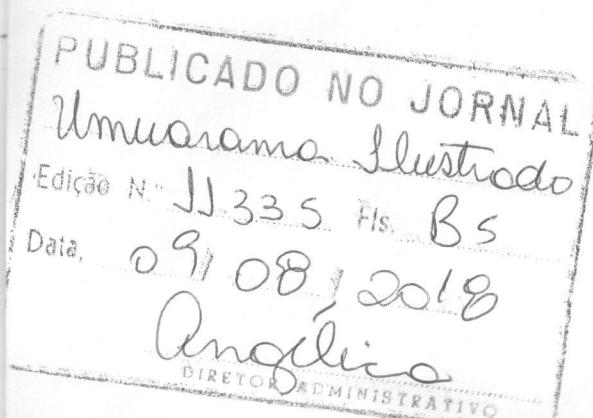 PUBLICADO NO JORNAL
Umuarama Ilustrado
Edição N.º 11335 Fls. B5
Data, 09/ 08 / 2018
Angélica
DIRETOR ADMINISTRATIVO